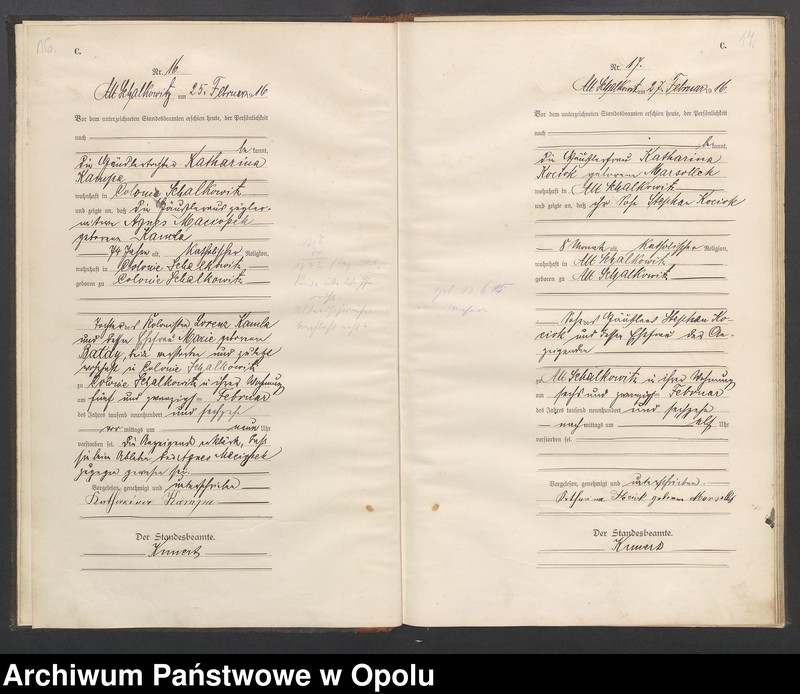 16.
C.
Nr. 16
Alt Schalkowitz am 25. Februar 1916
Vor dem unterzeichneten Standesbeamten erschien heute, der Persönlichkeit
nach
be kannt,
die Häuslertochter Katharina
Kampa
wohnhaft in Colonie Schalkowitz
und zeigte an, daß die
Agnes
geborene Kamla
74 Jahre alt, Katholischer Religion,
wohnhaft in Colonie Schalkowitz
geboren zu Colonie Schalkowitz
Tochter des Kolonisten Lorenz Kamla
und dessen Ehefrau Marie geborenen
beide verstorben und zuletzt
wohnhaft in Colonie Schalkowitz
zu Colonie Schalkowitz in ihrer Wohnung
am fünf und zwanzigsten Februar
des Jahres tausend neunhundert und sechzehn
vor mittags um neun Uhr
verstorben sei. Die Anzeigende erklärte, daß
sie beim Ableben der Agnes
zugegen gewesen sei.
Vorgelesen, genehmigt und unterschrieben
Katharina Kampa
Der Standesbeamte.
Kunert
17.
C.
Nr. 17.
Alt Schalkowitz am 27. Februar 1916
Vor dem unterzeichneten Standesbeamten erschien heute, der Persönlichkeit
nach
be kannt,
die Häuslerfrau Katharina
Kociok geborene Marsollek
wohnhaft in Alt Schalkowitz
und zeigte an, daß ihr Sohn Stephan Kociok
8 Monate alt, Katholischer Religion,
wohnhaft in Alt Schalkowitz
geboren zu Alt Schalkowitz
Sohn des Häuslers Stephan Ko-
ciok und dessen Ehefrau der An-
zeigenden
zu Alt Schalkowitz in ihrer Wohnung
am sechs und zwanzigsten Februar
des Jahres tausend neunhundert und sechzehn
nach mittags um elf Uhr
verstorben sei.
Vorgelesen, genehmigt und unterschrieben.
Katharina Kociok geborene Marsollek
Der Standesbeamte.
Kunert
Archiwum Państwowe w Opolu